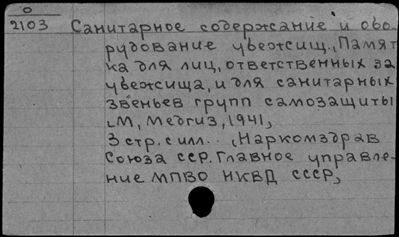 О
2103 Санитарное содержание и обо-
рудование убежищ, Памят
ка для лиц, ответственных за
убежища, и для санитарных
звеньев групп самозащиты
М, Медгиз, 1941,
3 стр. с илл.. , Наркомздрав
Союза ССР. Главное управле-
ние МПВО НКВД СССР,